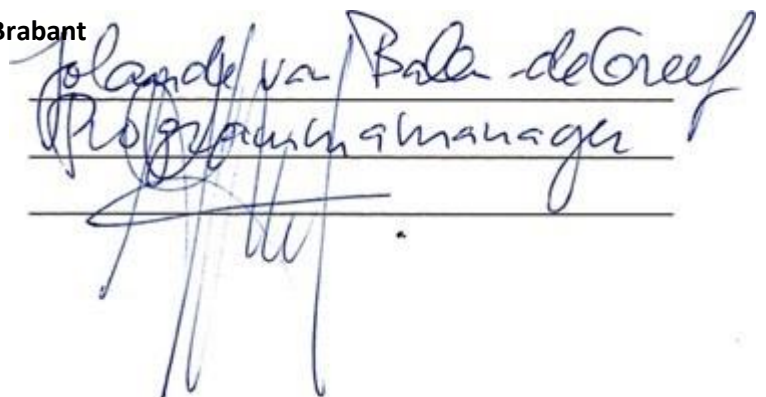 Brabant
Jolande van Balen-de Greef
Programmamanager